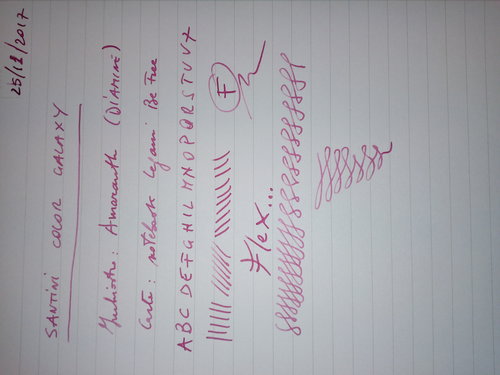 25/12/2017
SANTINI COLOR GALAXY
Inchiostro: Amaranth (DIAMINE)
Carta: notebook legami Be Free
ABC DEFGHILMNOPQRSTUVZ
F
Flex...